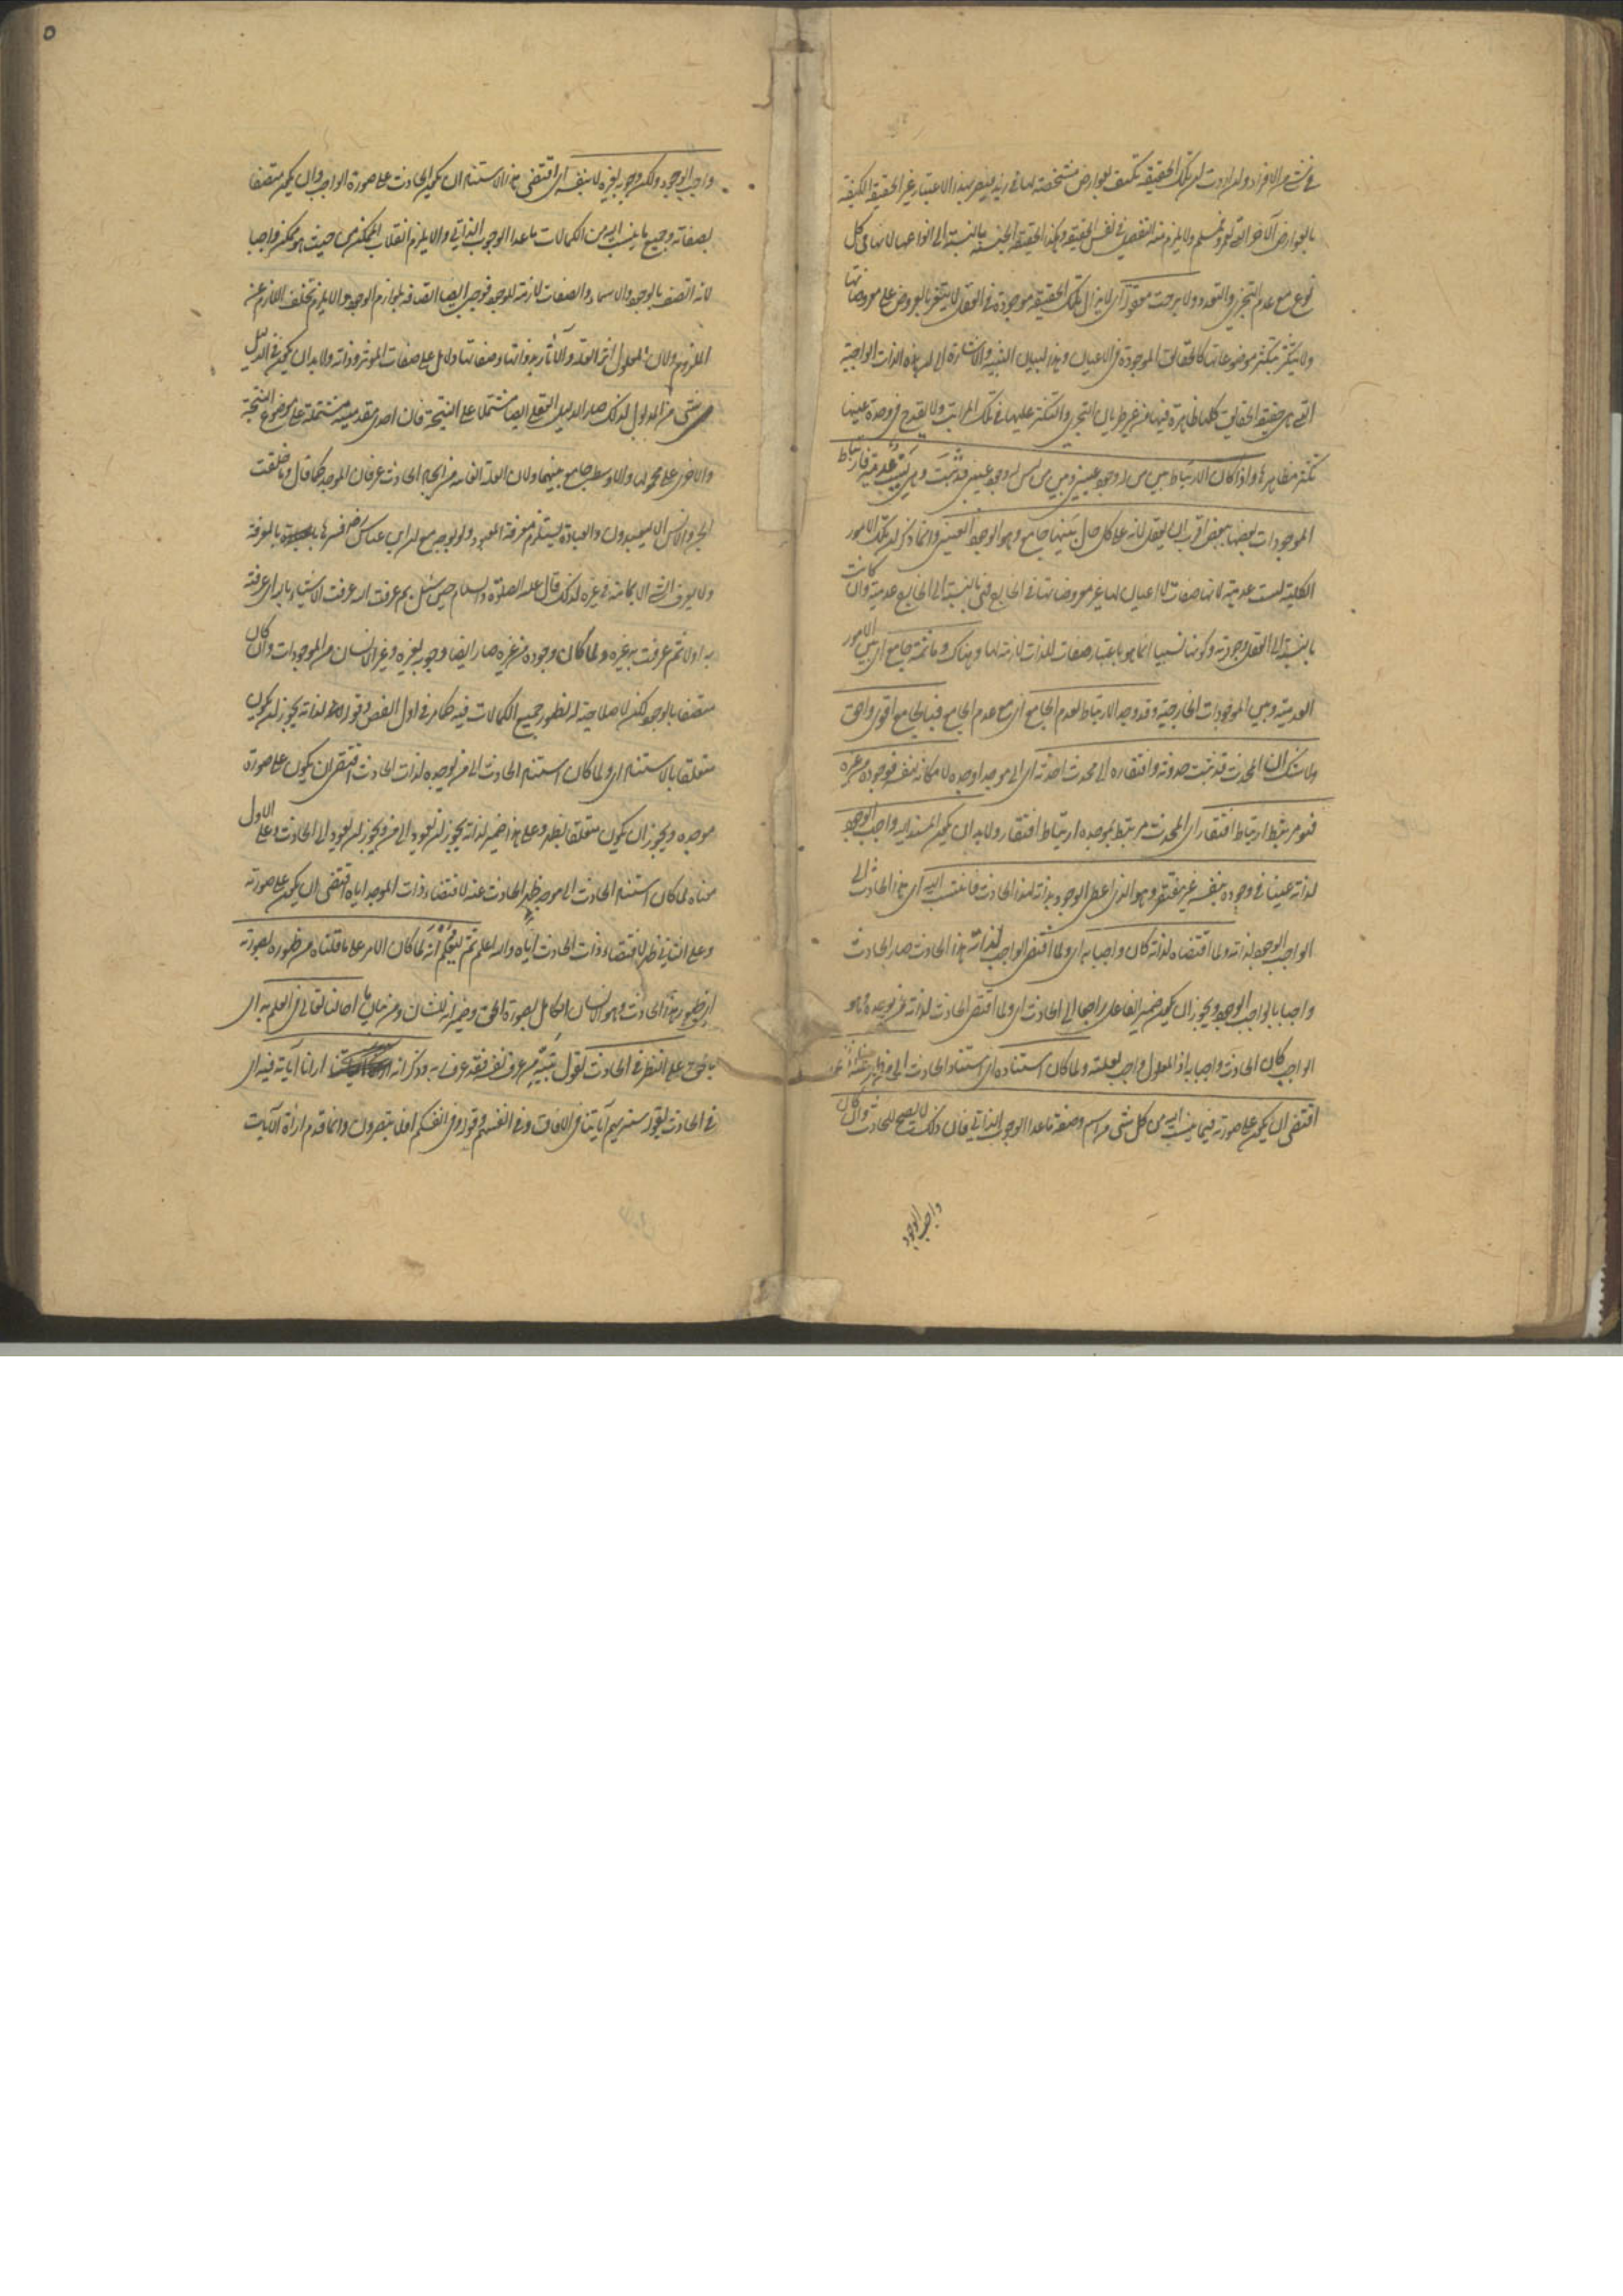 في شيء من الافراد ولو اردت ان تلك الحقيقة تكيفت بعوارض مشخصة لها في زيد فيتغير بهذا الاعتبار غير الحقيقة المكيفة
بالعوارض الاخر التي لعمرو فمسلم ولا يلزم منه التفصيل في نفس الحقيقة وهكذا الحقيقة الجنسية بالنسبة الى انواعها لانها في كل
نوع مع عدم التجزي والتعدد ولا برحت معقولة اي لا يزال تلك الحقيقة موجودة في العقل لا يتغير بالعروض على معروضاتها
ولا يتكثر بتكثر موضوعاتها كالحقائق الموجودة في الاعيان وهذا لسان التنبيه والاشارة الى ان هذه الذات الواجبية
التي هي حقيقة الحقايق كلها ظاهرة فيها من غير طريان التجزي والتكثر عليها في تلك المراتب ولا يقدح في وحدة عينها
تكثر مظاهرها واذا كان الارتباط بين من له وجود عيني وبين من ليس له وجود عيني قد ثبت وهي نسب عدمية فارتباط
الموجودات بعضها ببعض اقرب ان يعقل لانه على كل حال بينهما جامع وهو الوجود العيني وانما ذكر ان تلك الامور
الكلية نسب عدمية لانها صفات لا اعيان لها غير معروضاتها في الخارج فهي بالنسبة الى الخارج عدمية وان كانت
بالنسبة الى العقل وجودية وكونها نسبيا انما هو باعتبار صفات للذات لازمة لها وهناك وما ثمة جامع اي بين الامور
العدمية وبين الموجودات الخارجية وقد وجد الارتباط لعدم الجامع اي مع عدم الجامع فبالجامع اقوى واحق
ولا شك ان المحدث قد ثبت حدوثه وافتقاره الى محدث احدثه اي الى موجد اوجده لامكانه لنفسه فوجوده من غيره
فهو مرتبط ارتباط افتقار اي المحدث مرتبط بموجده ارتباط افتقار ولا بد ان يكون المستند اليه واجب الوجود
لذاته غنيا في وجوده بنفسه غير مفتقر وهو الذي اعطى الوجود بذاته لهذا الحادث فانتسب اليه اي هذا الحادث الى
الواجب الوجود لذاته ولما اقتضاه لذاته كان واجبا به اي ولما اقتضى الواجب لذاته هذا الحادث صار الحادث
واجبا بالواجب الوجود ويجوز ان يكون ضمير الفاعل راجعا الى الحادث اي ولما اقتضى الحادث لذاته من يوجده وهو
الواجب كان الحادث واجبا به اذ المعلول واجب بعلته ولما كان استناده اي استناد الحادث الى من ظهر عنه لذاته
اقتضى ان يكون على صورته فيما ينسب اليه من كل شيء من اسم وصفة ما عدا الوجوب الذاتي فان ذلك لا يصح للحادث وان كان
واجب الوجود
٥
واجب الوجود ولكن وجوبه لغيره لا بنفسه اي اقتضى هذا الاستناد ان يكون الحادث على صورة الواجب وان يكون متصفا
بصفاته وجميع ما ينسب اليه من الكمالات ما عدا الوجوب الذاتي والا يلزم انقلاب الممكن من حيث هو ممكن واجبا
لانه اتصف بالوجود والاسماء والصفات لازمة للوجود فوجب ايضا اتصافه بلوازم الوجود والا يلزم تخلف اللازم عن
الملزوم ولان المعلول اثر العلة والآثار بذواتها وصفاتها دلايل على صفات المؤثر وذاته ولا بد ان يكون في الدليل
شيء من المدلول لذلك صار الدليل العقلي ايضا مشتملا على النتيجة فان احدى مقدمتيه مشتملة على موضوع النتيجة
والاخرى على محمولها والاوسط جامع بينهما ولان العلة الغائية من ايجاد الحادث عرفان الموجد كما قال وما خلقت
الجن والانس الا ليعبدون والعبادة يستلزم معرفة المعبود ولو بوجه مع ان ابن عباس رض فسرها بالمعرفة
ولا يعرف الشيء الا بما منه في غيره لذلك قال عليه الصلوة والسلام حين سئل بم عرفت الله عرفت الاشياء بالله اي عرفته
به اولا ثم عرفت به غيره ولما كان وجوده من غيره صار ايضا وجوبه لغيره وغير الانسان من الموجودات وان كان
متصفا بالوجود لكن لا صلاحية له لظهور جميع الكمالات فيه كما مر في اول الفص وقوله لذاته يجوز ان يكون
متعلقا بالاستناد اي ولما كان استناد الحادث الى من يوجده لذات الحادث اقتضى ان يكون على صورة
موجده ويجوز ان يكون متعلقا بظهر وعلى هذا ضمير لذاته يجوز ان يعود الى من ويجوز ان يعود الى الحادث فعلى الاول
معناه لما كان استناد الحادث الى موجد ظهر الحادث عنه لاقتضاء ذات الموجد اياه اقتضى ان يكون على صورته
وعلى الثاني ظهر لاقتضاء ذات الحادث اياه والله اعلم ثم ليعلم انه لما كان الامر على ما قلناه من ظهوره بصورته
اي ظهور هذا الحادث وهو الانسان الكامل بصورة الحق وضمير انه للشان ومن بيان ما احالنا تعالى في العلم به اي
بالحق على النظر في الحادث لقول نبيه من عرف نفسه فقد عرف ربه وذكر انه ارانا آياته فيه اي
في الحادث بقوله سنريهم آياتنا في الافاق وفي انفسهم وقوله وفي انفسكم افلا تبصرون وانما قدم اراءة الآيات